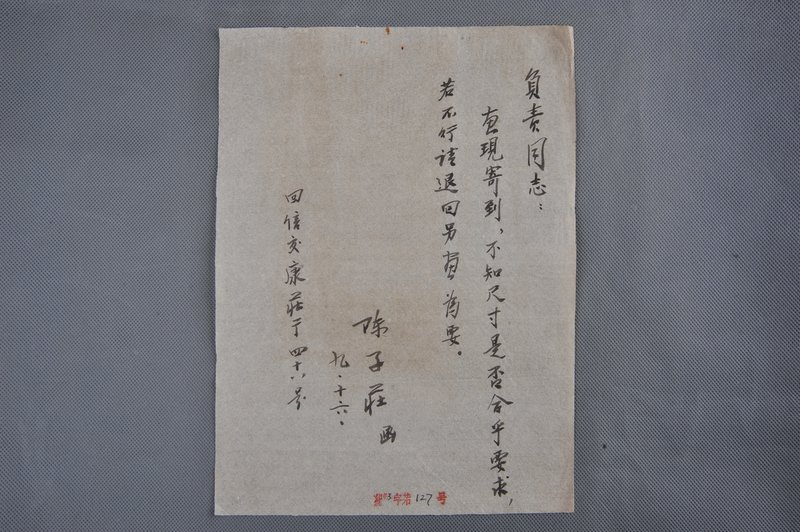 負责同志：
画現寄到、不知尺寸是否合乎要求，
若不行請退回另画为要。
陈子莊函
九.十六.
回信交康莊子四十八号
127号